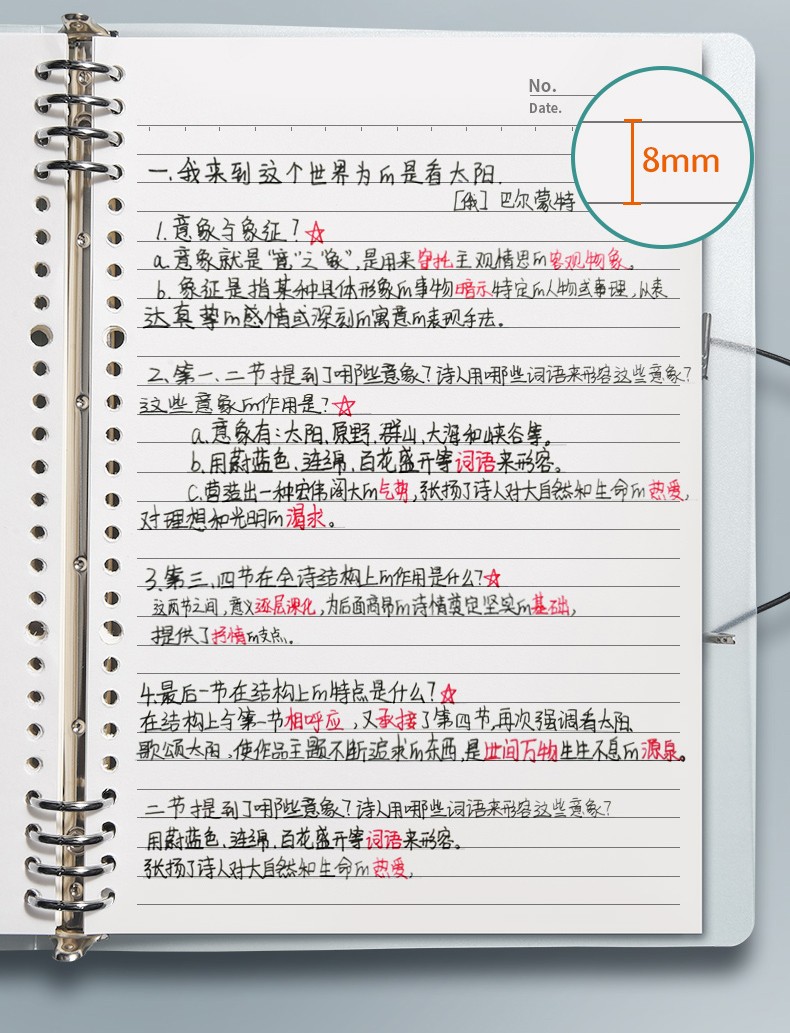 No.
Date.
8mm
一.我来到这个世界为的是看太阳.
[俄] 巴尔蒙特
1.意象与象征？☆
a.意象就是“意”之“象”,是用来寄托主观情思的客观物象。
b.象征是指某种具体形象的事物暗示特定的人物或事理,以表
达真挚的感情或深刻的寓意的表现手法。
2.第一、二节提到了哪些意象？诗人用哪些词语来形容这些意象？
这些意象的作用是？☆
a.意象有：太阳、原野、群山、大海和峡谷等。
b.用蔚蓝色、连绵、百花盛开等词语来形容。
c.营造出一种宏伟阔大的气势,张扬了诗人对大自然和生命的热爱,
对理想和光明的渴求。
3.第三、四节在全诗结构上的作用是什么？☆
这两节之间,意义逐层深化,为后面高昂的诗情奠定坚实的基础,
提供了抒情的支点。
4.最后一节在结构上的特点是什么？☆
在结构上与第一节相呼应,又承接了第四节,再次强调看太阳、
歌颂太阳,使作品主题不断追求的东西,是世间万物生生不息的源泉。
二节提到了哪些意象？诗人用哪些词语来形容这些意象？
用蔚蓝色、连绵、百花盛开等词语来形容。
张扬了诗人对大自然和生命的热爱,